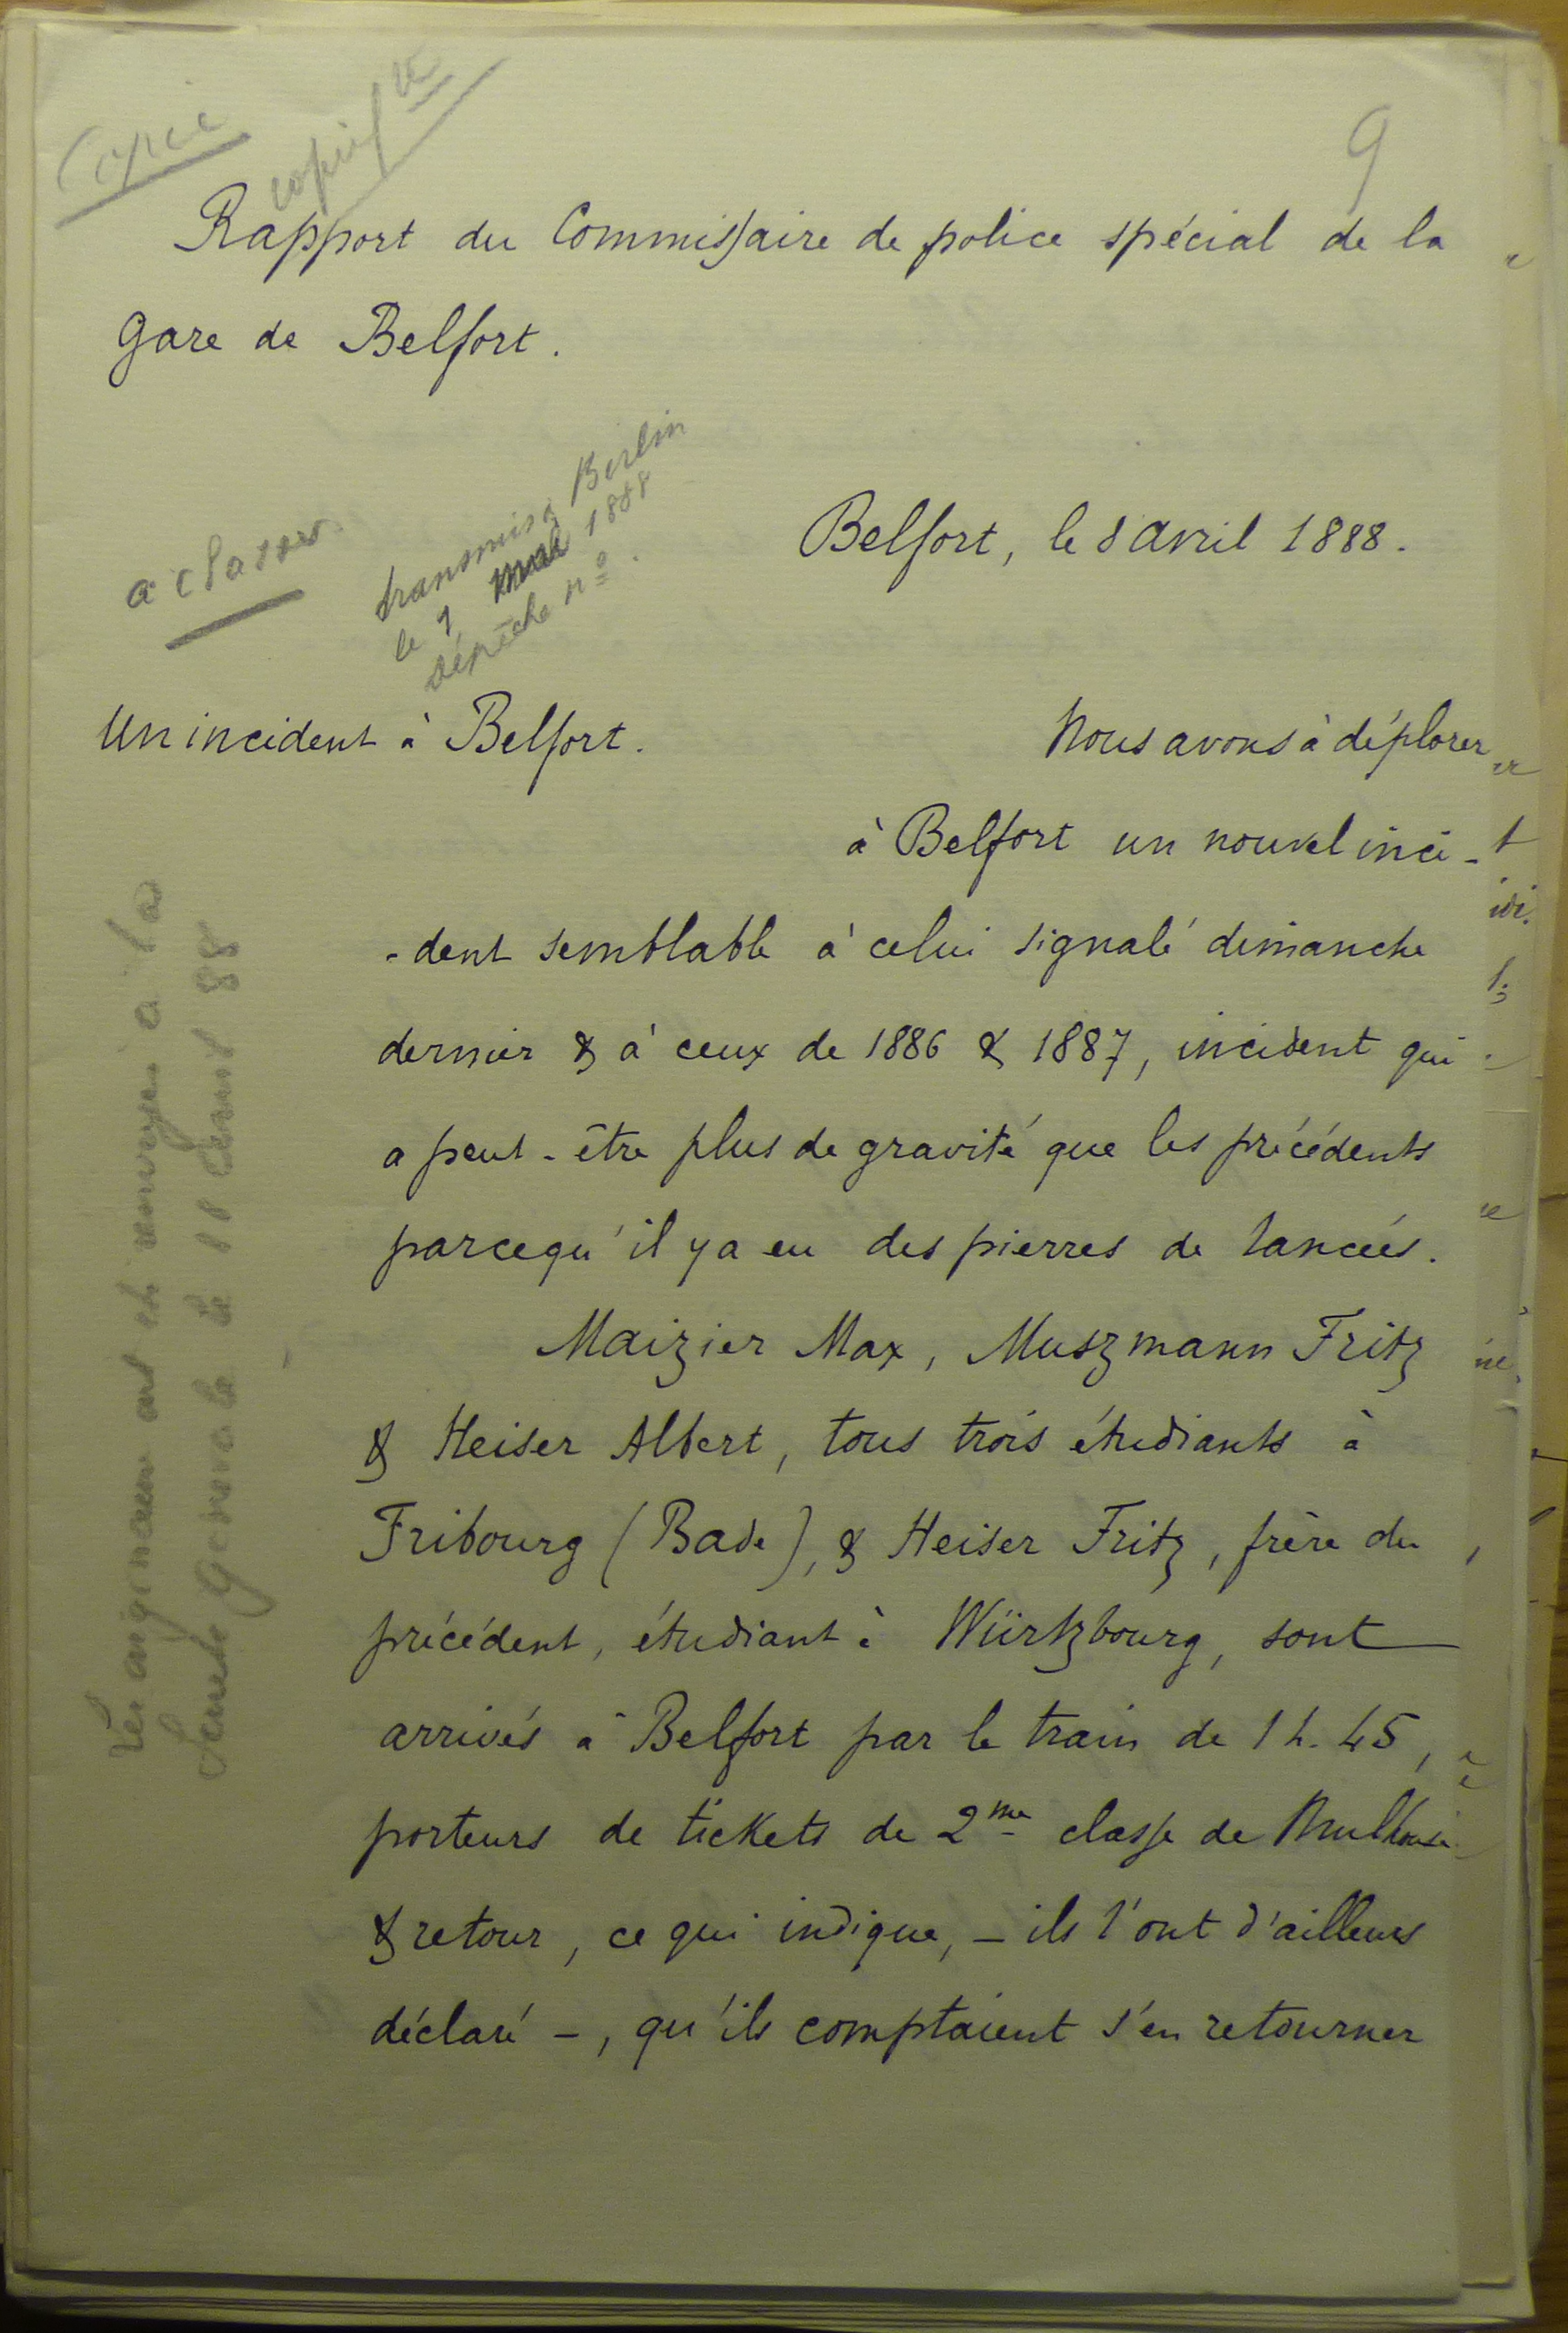 Copie
copié
9
Rapport du Commissaire de police spécial de la
Gare de Belfort.
Belfort, le 8 avril 1888.
à classer
transmis à Berlin
le 1 mai 1888
dépêche nº .
Un incident à Belfort.
Nous avons à déplorer
à Belfort un nouvel inci-
-dent semblable à celui signalé dimanche
dernier & à ceux de 1886 & 1887, incident qui
a peut-être plus de gravité que les précédents
parcequ'il y a eu des pierres de lancées.
Maizier Max, Muszmann Fritz
& Heiser Albert, tous trois étudiants à
Fribourg (Bade), & Heiser Fritz, frère du
précédent, étudiant à Würtzbourg, sont
arrivés à Belfort par le train de 1 h. 45,
porteurs de tickets de 2me classe de Mulhouse
& retour, ce qui indique, - ils l'ont d'ailleurs
déclaré -, qu'ils comptaient s'en retourner
Les originaux ont été renvoyés à la
Sureté Générale le 11 avril 88